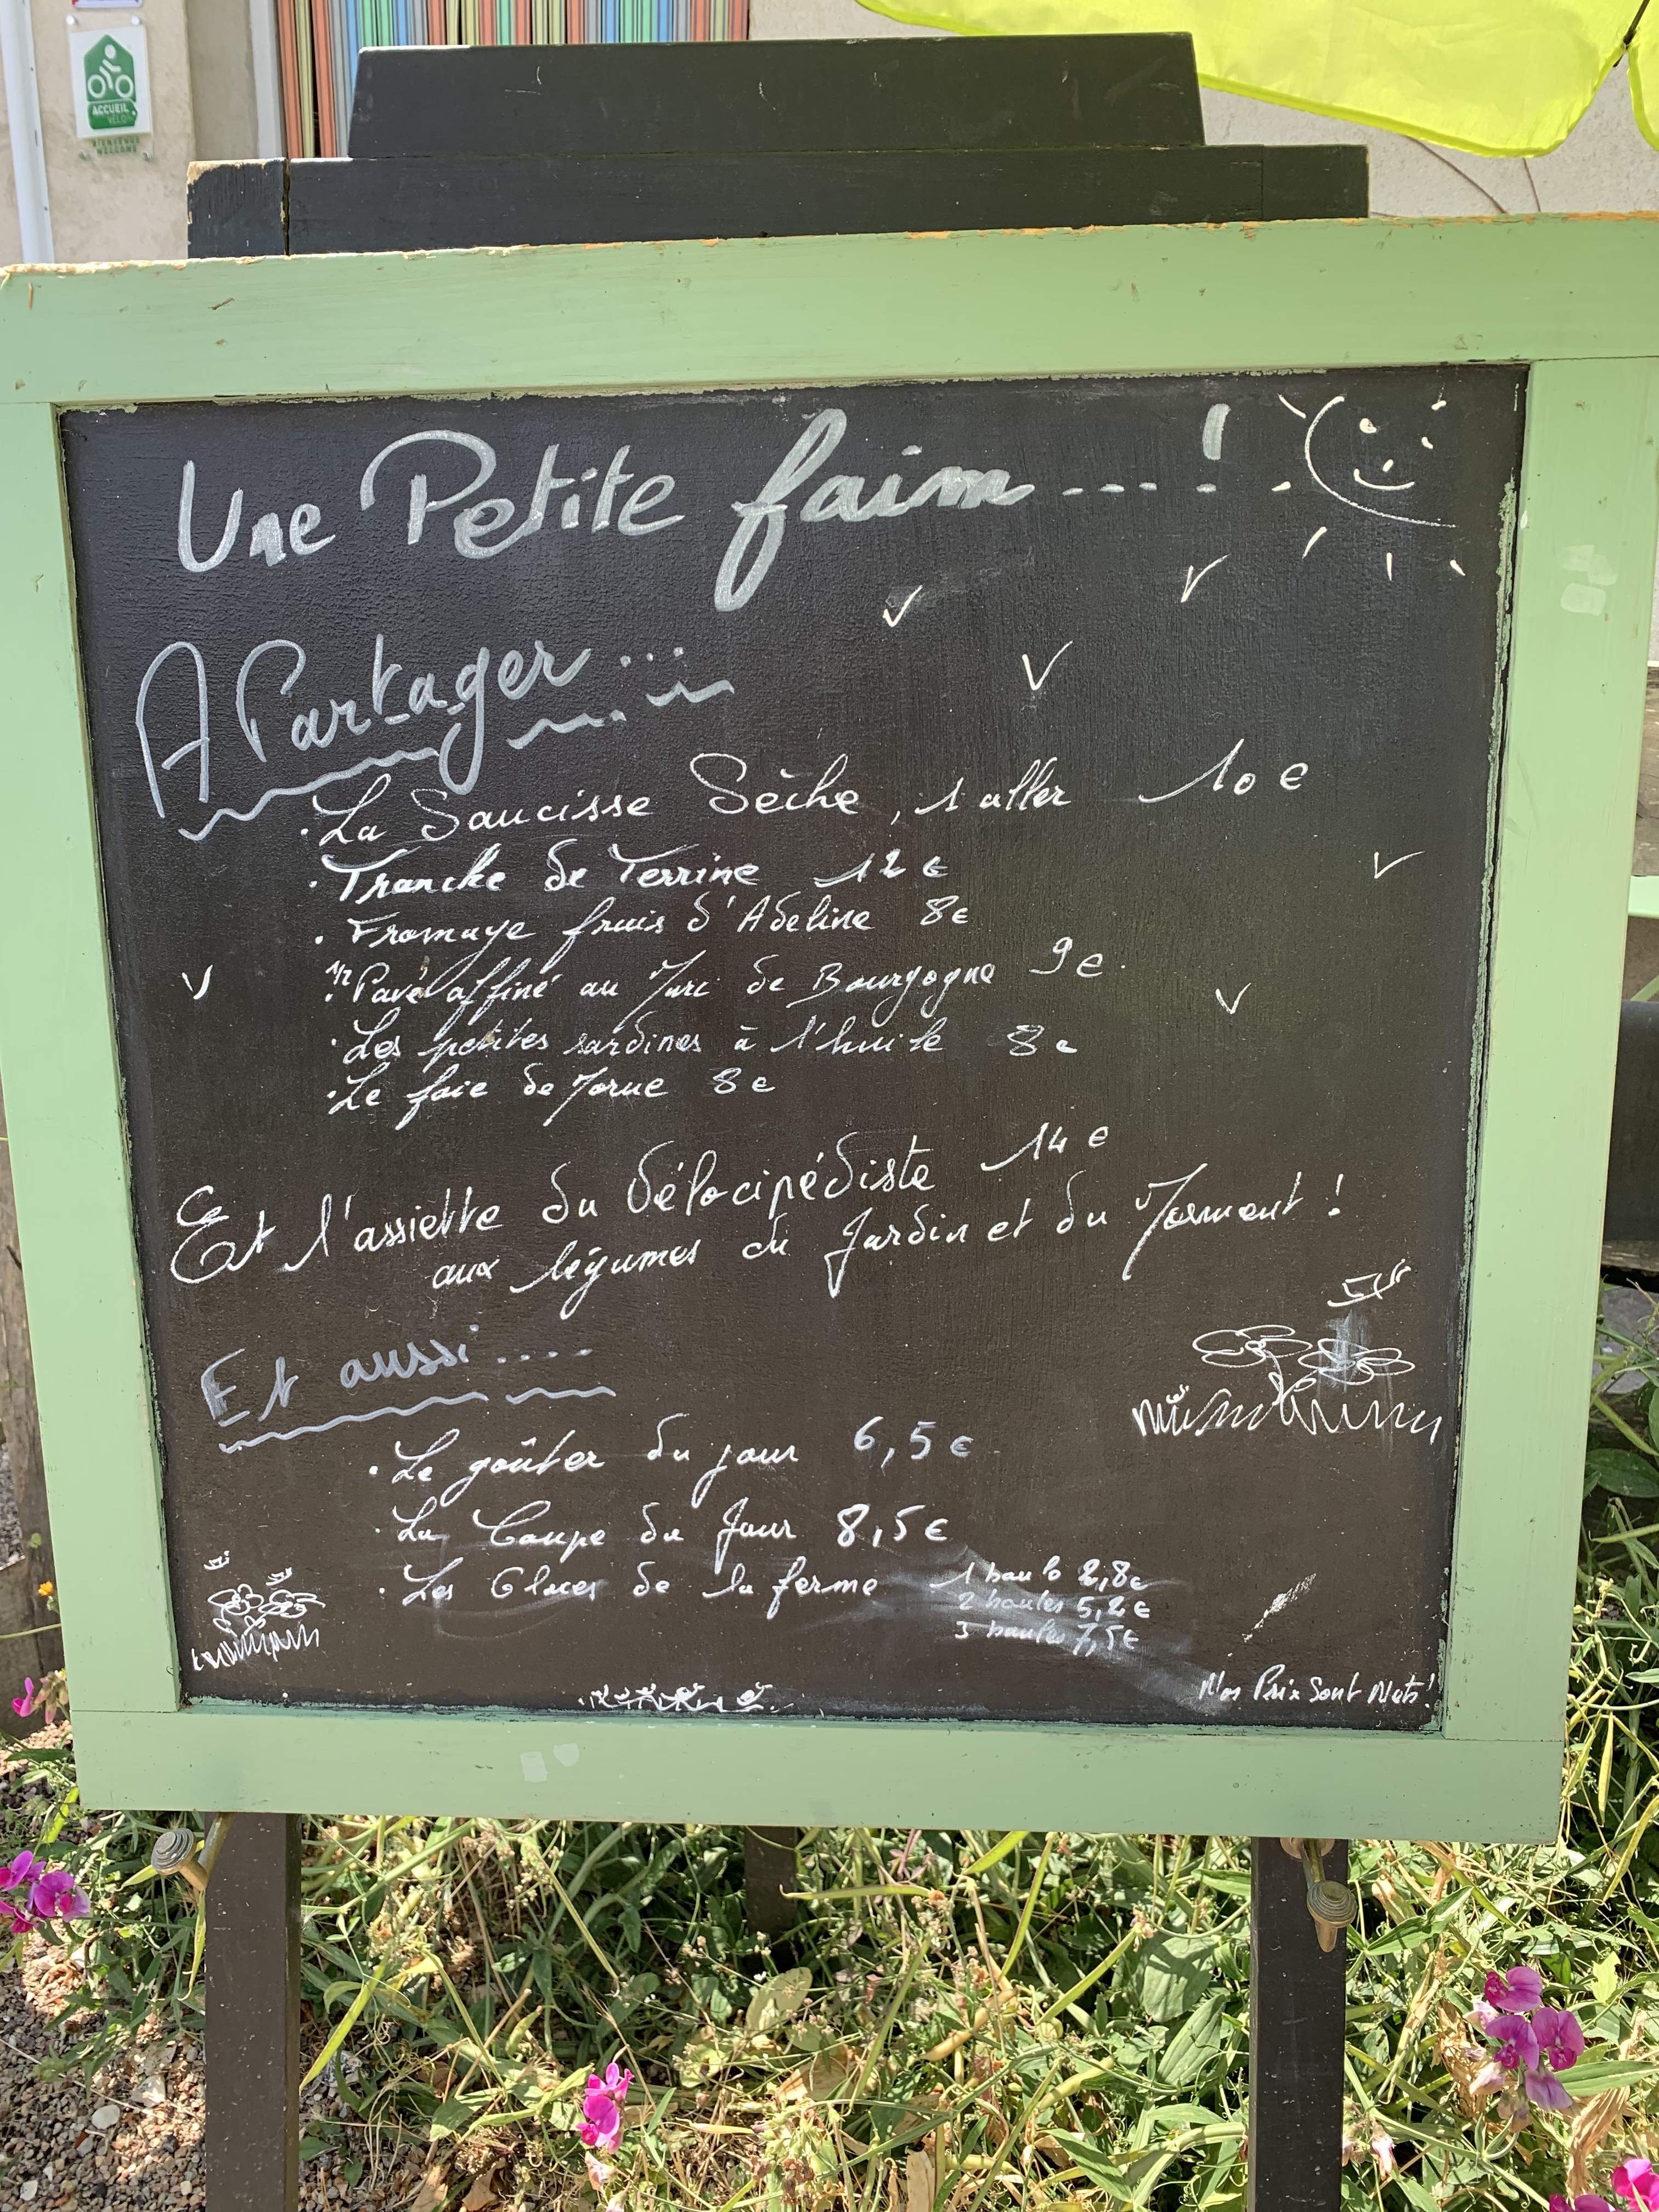 ACCUEIL
VÉLO
BIENVENUE
WELCOME
Une Petite faim ....!
A Partager ...
· La Saucisse Sèche, 10 €
· Tranche de Terrine 12 €
· Fromage frais d'Adeline 8 €
· 1/2 Pavé affiné au Marc de Bourgogne 9 €
· Les petites sardines à l'huile 8 €
· Le foie de Morue 8 €
Et l'assiette du Vélocipédiste 14 €
aux légumes du Jardin et du Moment !
Et aussi ....
· Le goûter du jour 6,5 €
· La Coupe du Jour 8,5 €
· Les Glaces de la ferme 1 boule 2,8 €
2 boules 5,2 €
3 boules 7,5 €
Nos Prix Sont Nets !